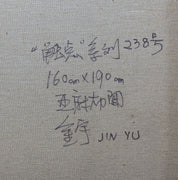 "触点"系列238号
160cm×190cm
亚麻布面
金宇 JIN YU